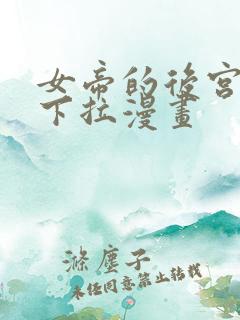 女帝的後宮
下拉漫畫
滌塵子
未经同意禁止转载